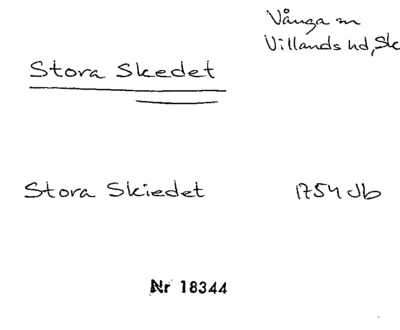 Vånga sn
Villands hd, Sk
Stora Skedet
Stora Skiedet 1754 Jb
Nr 18344